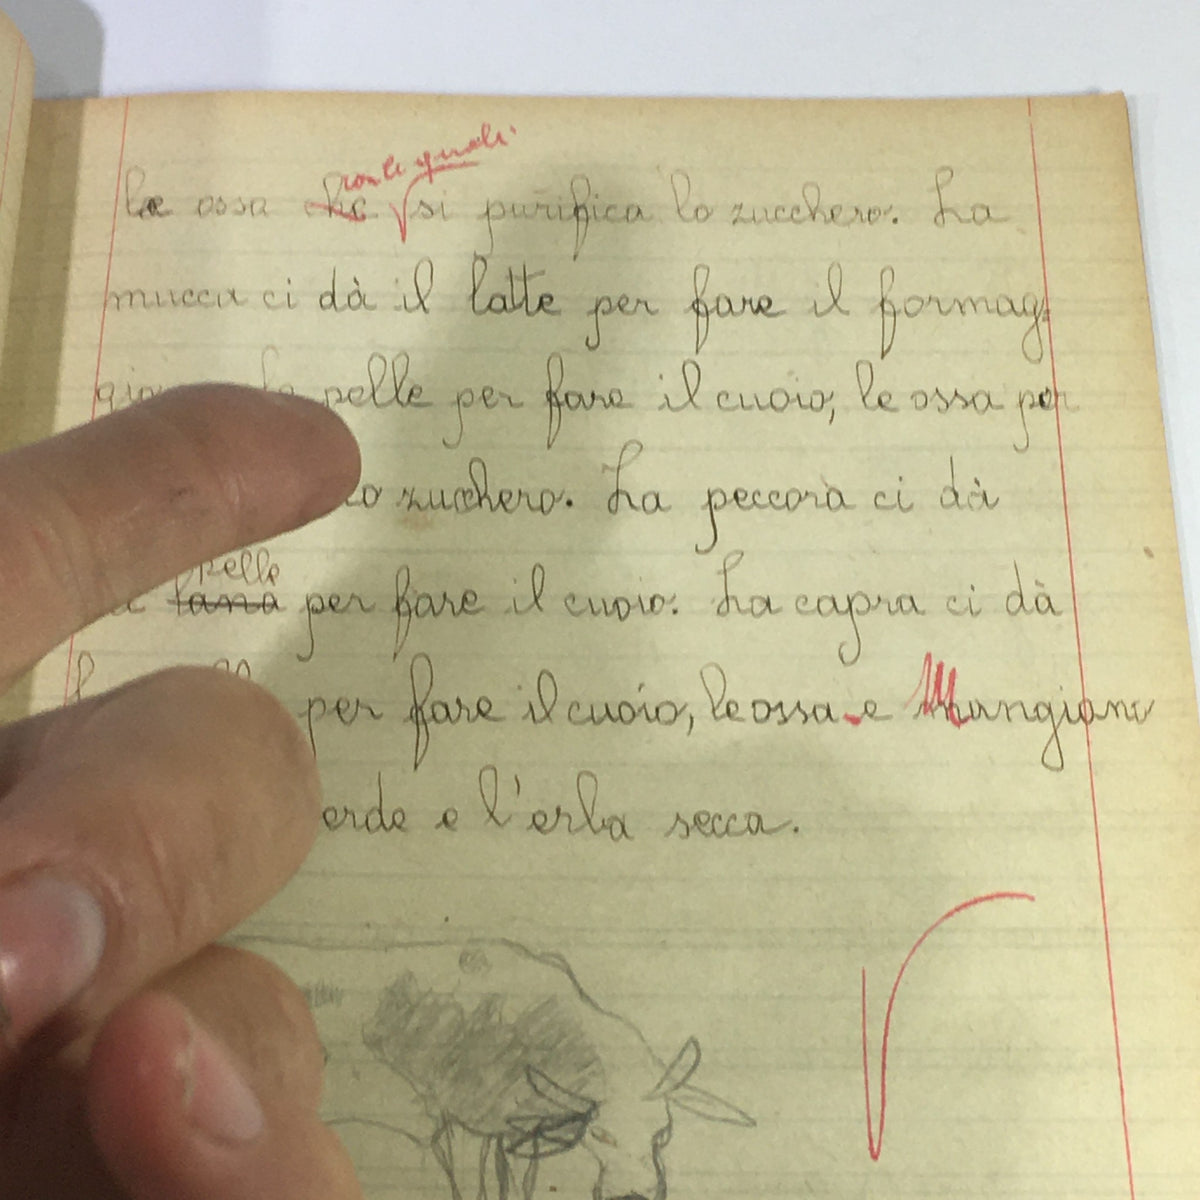 con le quali
le ossa che si purifica lo zucchero. La
mucca ci dà il latte per fare il formag-
pelle per fare il cuoio, le ossa per
lo zucchero. La peccora ci dà
pelle
lana per fare il cuoio. La capra ci dà
per fare il cuoio, le ossa e Mangiano
erde e l'erba secca.